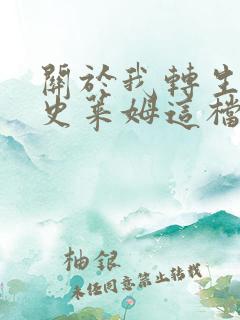 關於我轉生
史萊姆這檔
柚銀
未任同意禁止轉載